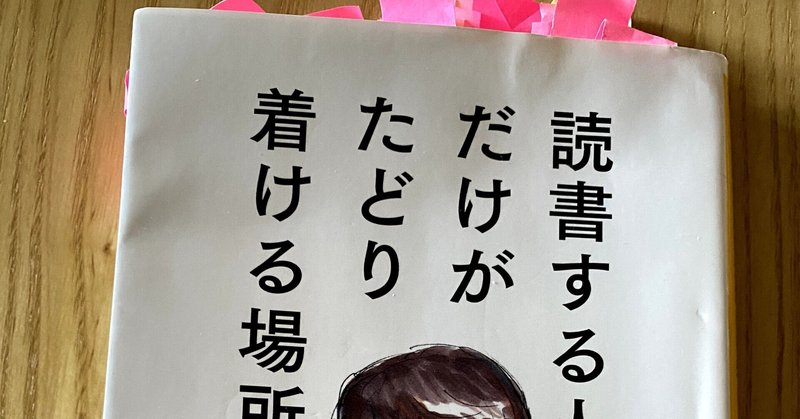 読書する人
だけが
たどり
着ける場所